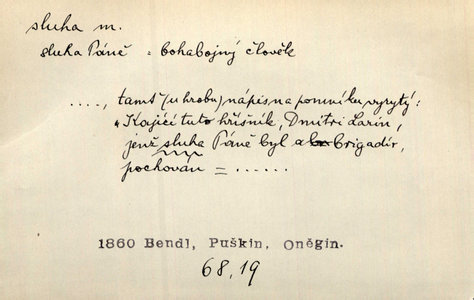 sluha m.
sluha Páně = bohabojný člověk
...., tamť (u hrobu) nápis na pomníku vyrytý:
"Kající tuto hříšník, Dmitri Larin,
jenž sluha Páně byl a brigadír,
pochován = ......
1860 Bendl, Puškin, Oněgin.
68,19